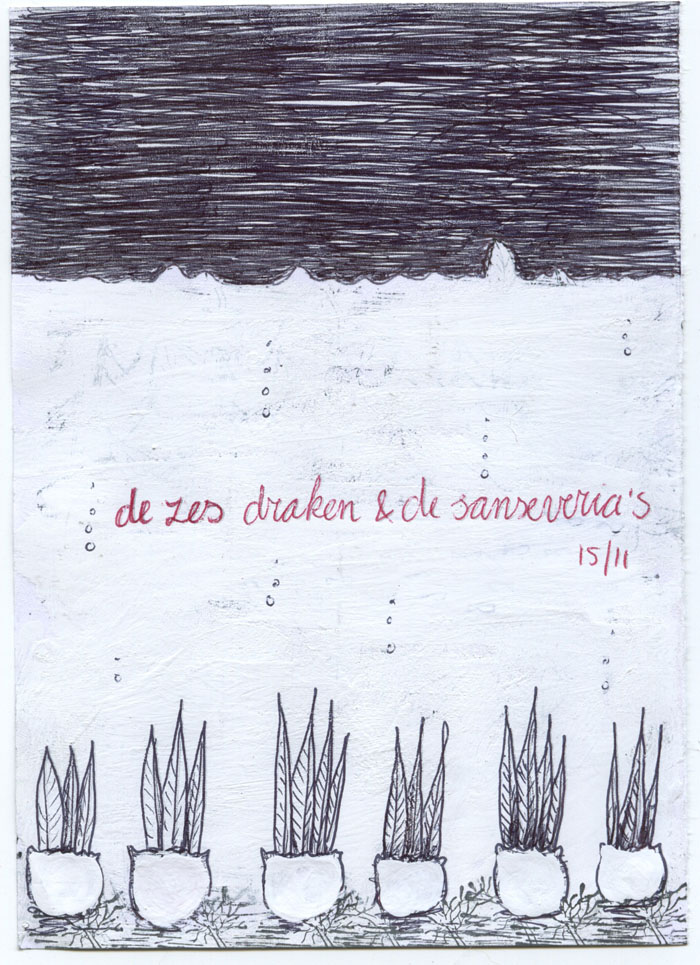 de zes draken & de sanseveria's
15/11